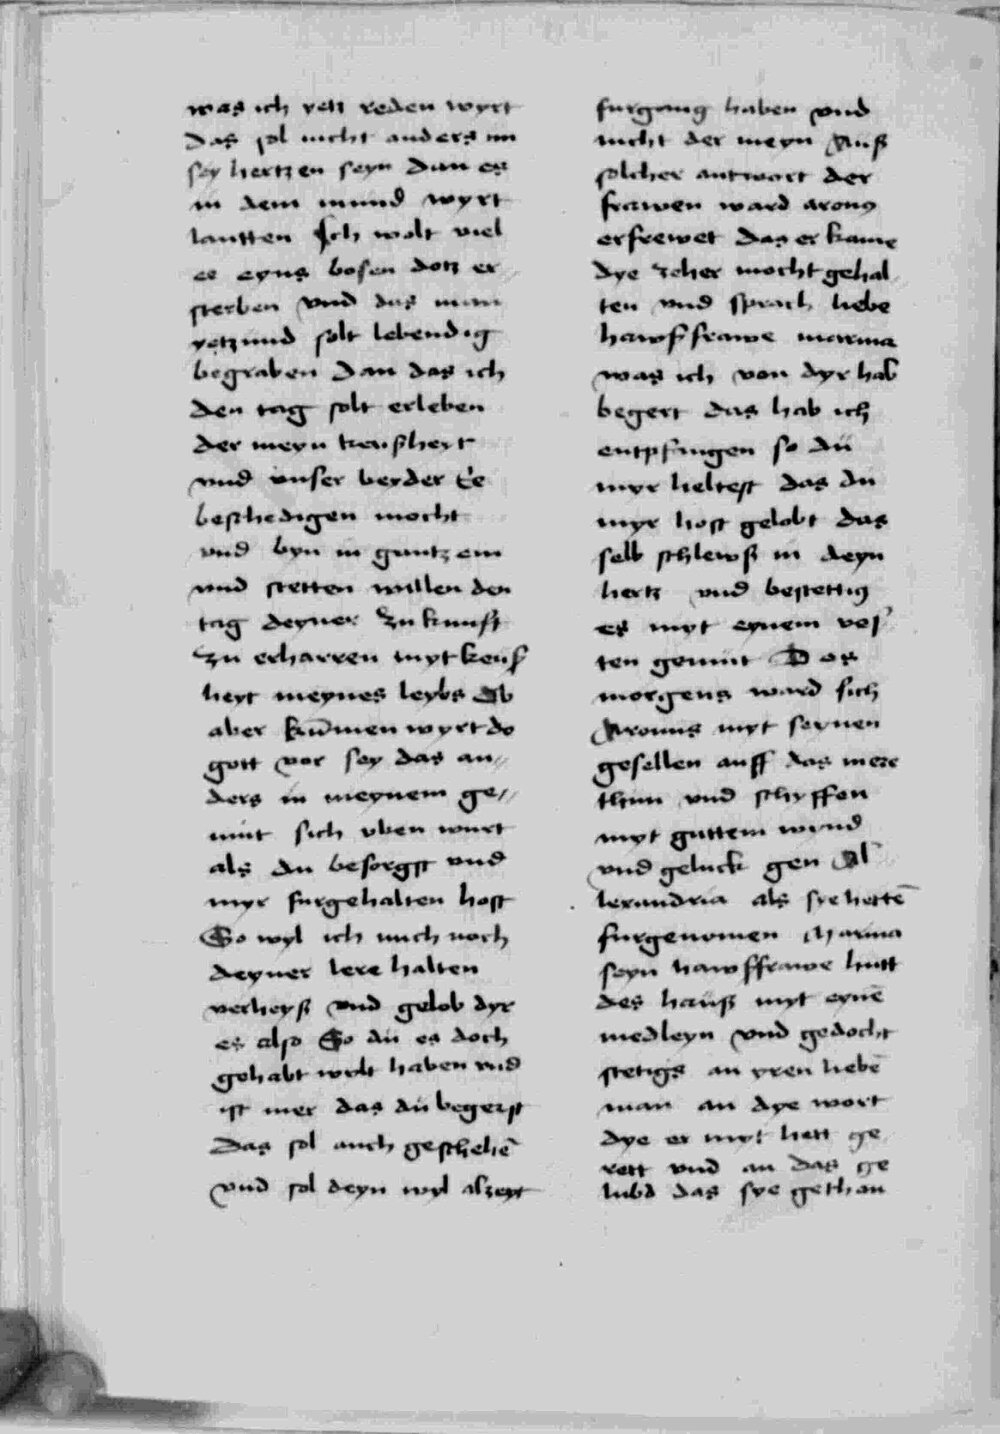 was ich yetz reden wyrt
das sol nicht anders im
sey hertzen seyn dan es
in dem mund wyrt
lautten Ich wolt viel
ee eyns bosen dotz er
sterben vnd das man
yetzund solt lebendig
begraben dan das ich
den tag solt erleben
der meyn keusheyt
vnd vnser beyder Ee
beschedigen mocht
vnd byn in gantzem
vnd stetten willen den
tag deyner zu kunft
zu erharren myt keus
heyt meynes leybs Ob
aber kūmen wyrt do
gott vor sey das an
ders in meynem ge
mut sich vben wurt
als du besorgst vnd
myr furgehalten host
So wyl ich mich noch
deyner lere halten
verheyß vnd gelob dyr
es also So du es doch
gehabt wylt haben vnd
ist mer das du begerst
das sol auch geschehē
vnd sol deyn wyl alzeyt
furgang haben vnd
nicht der meyn Auß
solcher antwort der
frawen ward aronus
erfrewet das er kaume
dye zeher mocht gehal
ten vnd sprach liebe
hawsfrawe marina
was ich von dyr hab
begert das hab ich
entpfangen so du
myr heltest das du
myr host gelobt das
selb schlewß in deyn
hertz vnd bestettig
es myt eynem ves
ten gemut Des
morgens ward sich
Aronus myt seynen
gesellen auff das mere
thun vnd schyffen
myt guttem wynd
vnd geluck gen Al
lexandria als sye hettē
furgenomen Marina
seyn hawsfrawe hutt
des hauß myt eynē
medleyn vnd gedocht
stetigs an yren liebē
man an dye wort
dye er myt hett ge
rett vnd an das ge
lubd das sye gethan